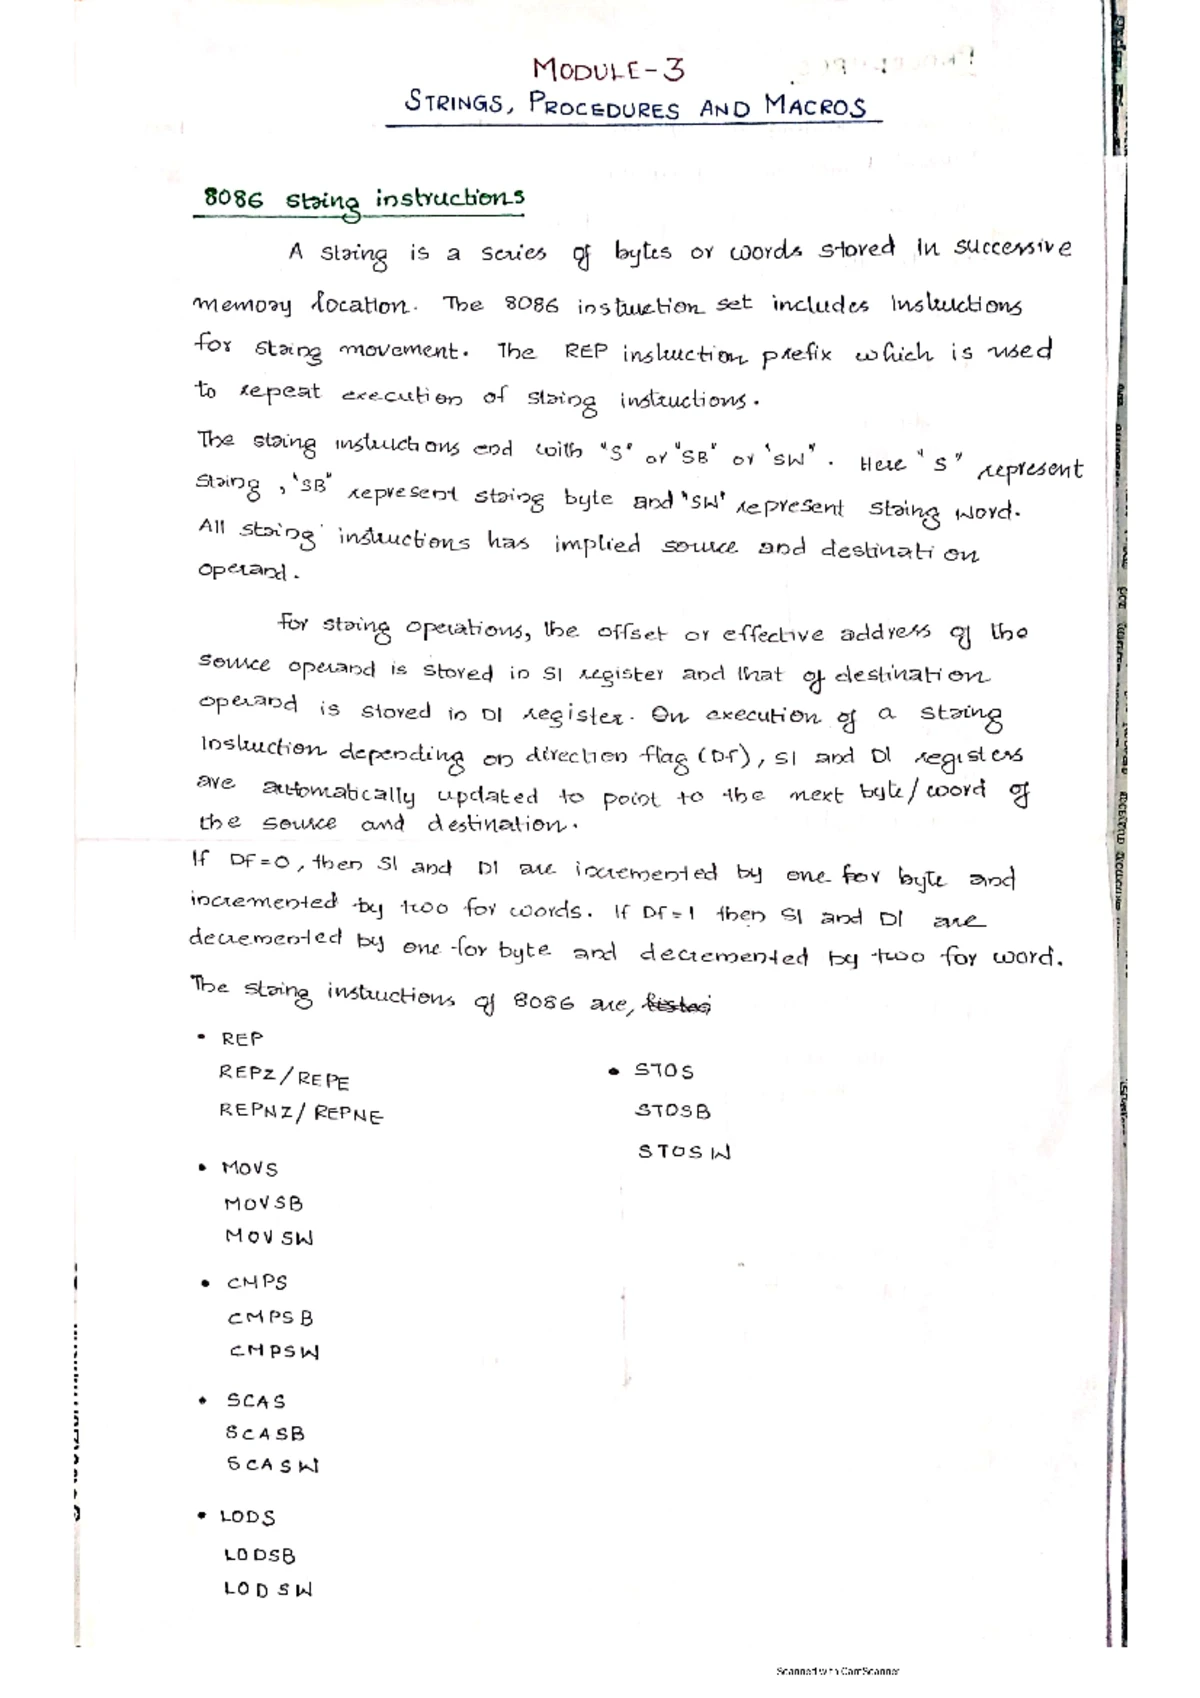 MODULE-3
STRINGS, PROCEDURES AND MACROS
8086 string instructions
A string is a series of bytes or words stored in successive
memory location. The 8086 instruction set includes instructions
for string movement. The REP instruction prefix which is used
to repeat execution of string instructions.
The string instructions end with "S" or "SB" or "SW". Here "S" represent
string, "SB" represent string byte and "SW" represent string word.
All string instructions has implied source and destination
operand.
For string operations, the offset or effective address of the
source operand is stored in SI register and that of destination
operand is stored in DI register. On execution of a string
instruction depending on direction flag (DF), SI and DI registers
are automatically updated to point to the next byte/word of
the source and destination.
If DF=0, then SI and DI are incremented by one for byte and
incremented by two for words. If DF=1 then SI and DI are
decremented by one for byte and decremented by two for word.
The string instructions of 8086 are,
• REP
REPZ/REPE
REPNZ/REPNE
• MOVS
MOVSB
MOVSW
• CMPS
CMPSB
CMPSW
• SCAS
SCASB
SCASW
• LODS
LODSB
LODSW
• STOS
STOSB
STOSW
Scanned with CamScanner